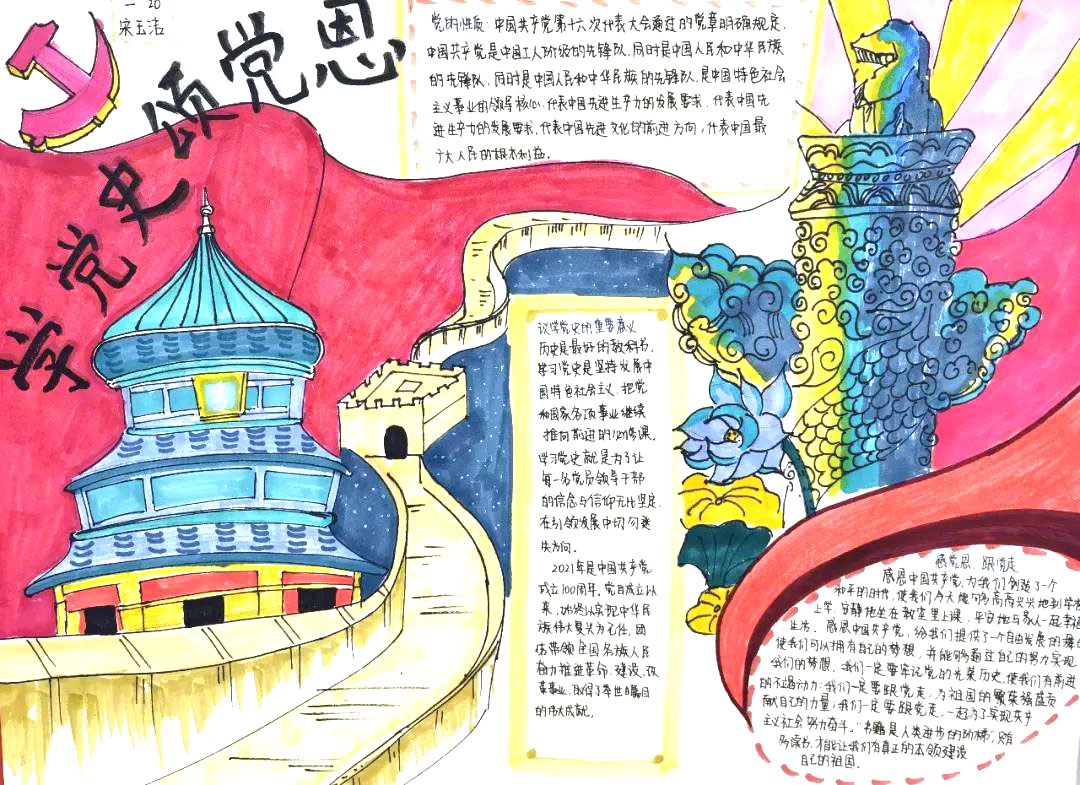 一 20
宋玉洁
学党史颂党恩
党的性质:中国共产党第十六次代表大会通过的党章明确规定,
中国共产党是中国工人阶级的先锋队,同时是中国人民和中华民族
的先锋队,同时是中国人民和中华民族的先锋队,是中国特色社会
主义事业的领导核心,代表中国先进生产力的发展要求,代表中国先
进生产力的发展要求,代表中国先进文化的前进方向,代表中国最
广大人民的根本利益。
议学党史的重要意义
历史是最好的教科书,
学习党史是坚持发展中
国特色社会主义,把党
和国家各项事业继续
推向前进的必修课。
学习党史就是为了让
每一名党员领导干部
的信念与信仰无比坚定,
在引领发展中切勿迷
失方向。
2021年是中国共产党
成立100周年,党自成立以
来,始终以实现中华民
族伟大复兴为己任,团
结带领全国各族人民
奋力推进革命、建设、改
革事业,取得了举世瞩目
的伟大成就。
感党恩、跟党走
感恩中国共产党,为我们创造了一个
和平的时代,使我们今天能够高高兴兴地到学校
上学,安静地坐在教室里上课,平安地与家人一起幸福
生活。感恩中国共产党,给我们提供了一个自由发展的舞台
使我们可以拥有自己的梦想,并能够通过自己的努力实现
我们的梦想。我们一定要牢记党的光荣历史,使我们有前进
的不竭动力;我们一定要跟党走,为祖国的繁荣强盛贡
献自己的力量;我们一定要跟党走,一起为了实现共产
主义社会努力奋斗。"书籍是人类进步的阶梯",只有
多读书,才能让我们有真正的本领建设
自己的祖国。